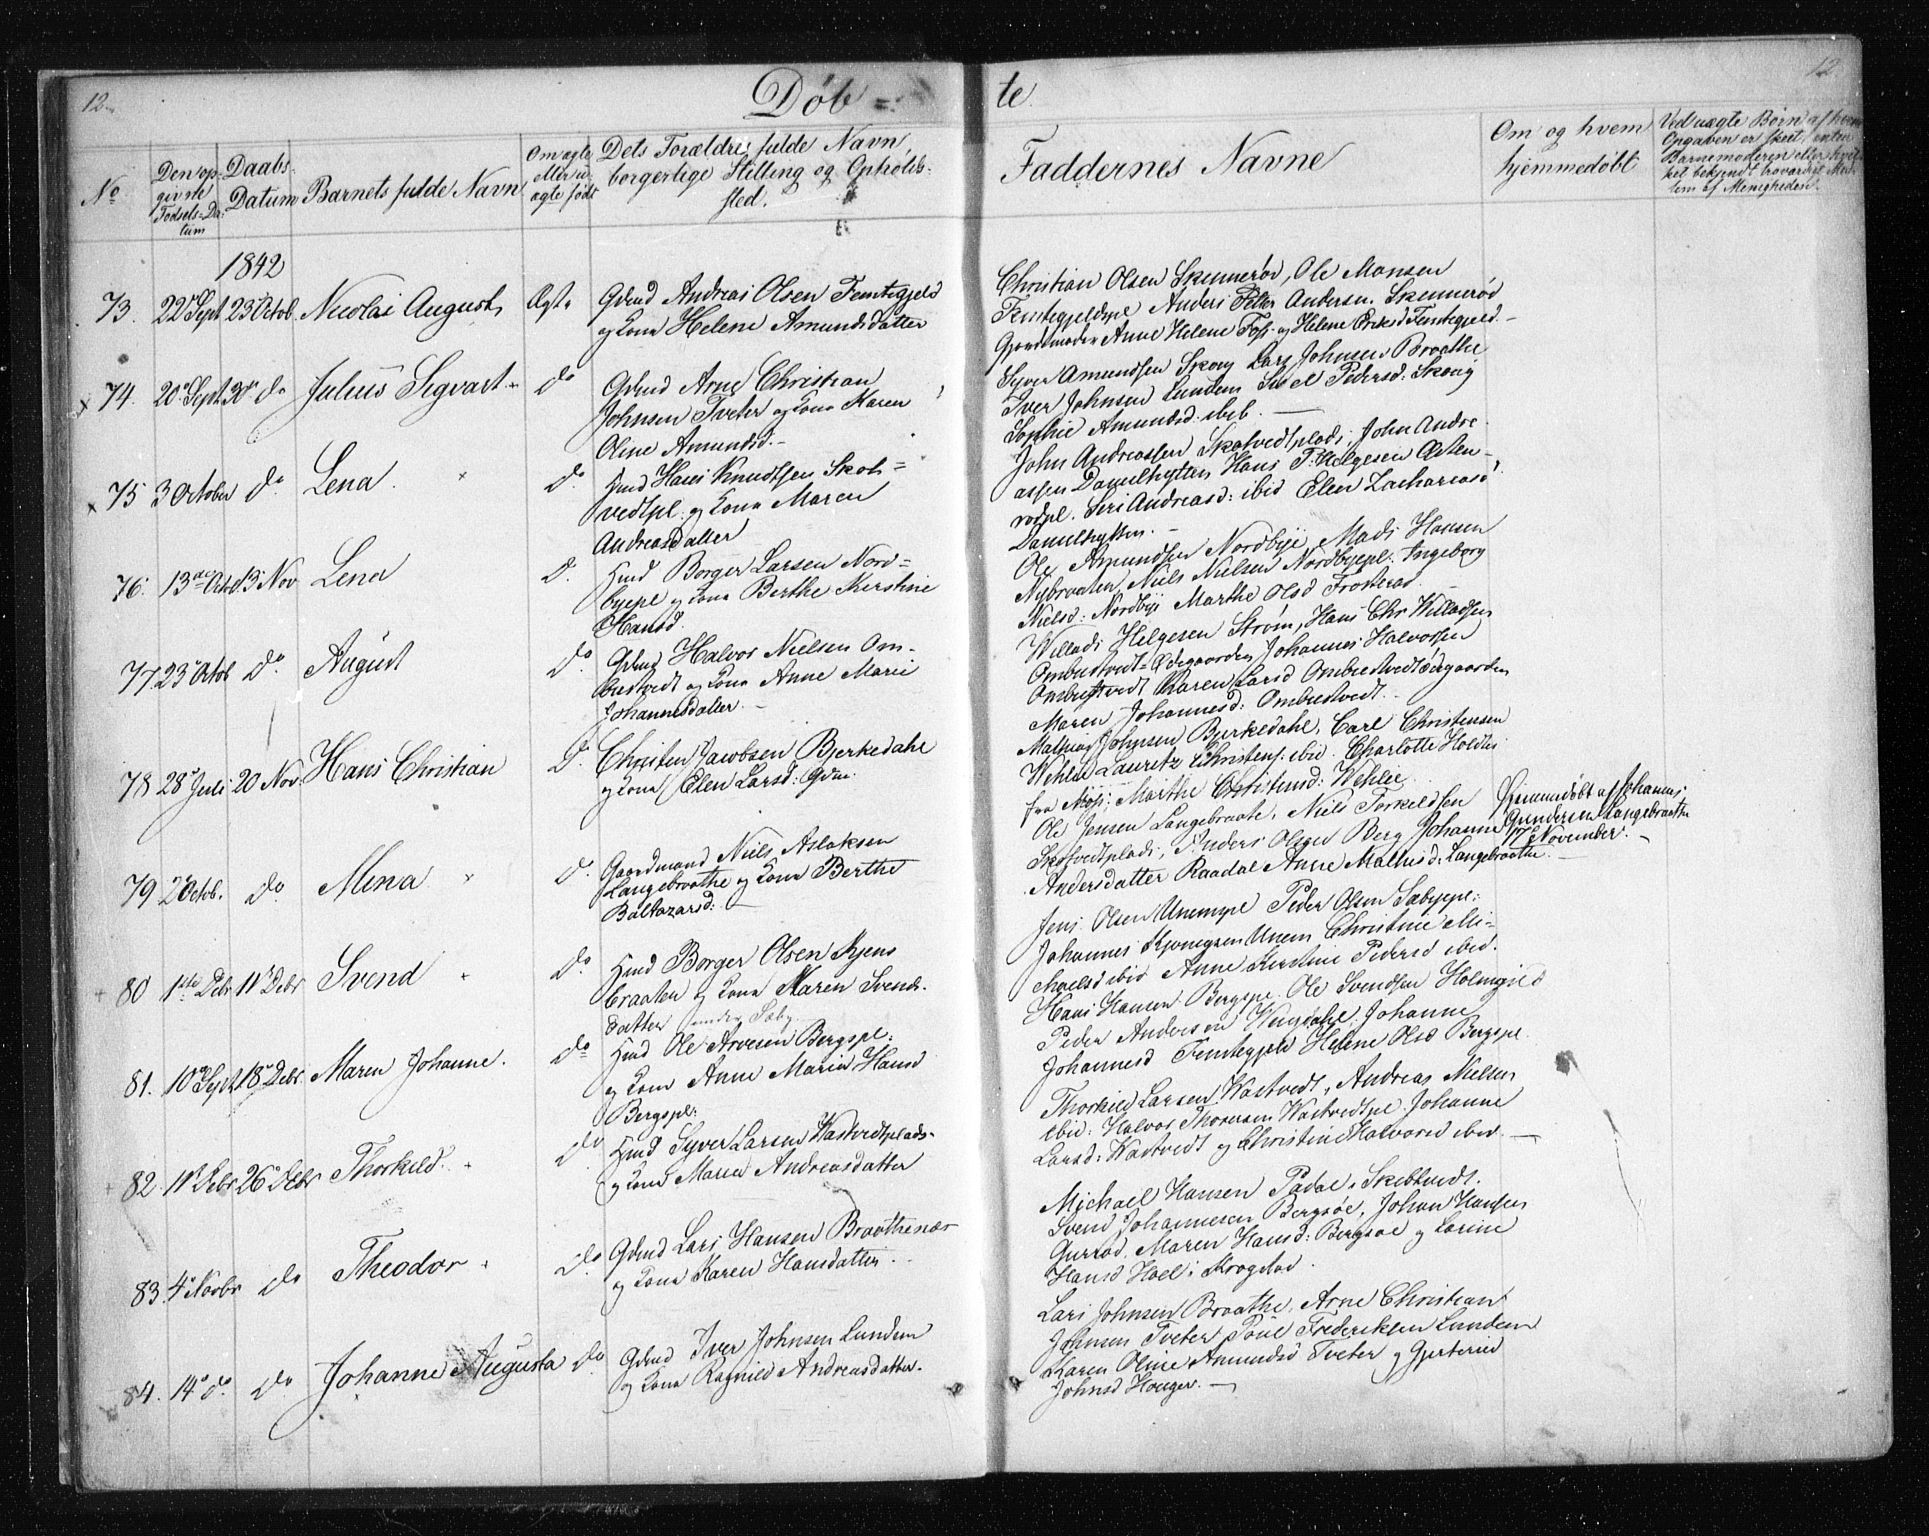 12.
Døb=
te
12.
No
Den opgivne Fødsels-Datum
Daabs-Datum
Barnets fulde Navn
Om ægte eller uægte født
Dets Forældres fulde Navn, borgerlige Stilling og Opholdssted.
Faddernes Navne
Om og hvem hjemmedøbt
Ved uægte Børn af hvem Opgaven er skeet, enten Barnemoderen eller hvilket bekjendt troværdigt Medlem af Menigheden.
1842
73. 22de Sept 23de Octob. Nicolai August Ægte
Gdmd Andreas Olsen Femtegjeld
og Kona Helene Amundsdatter
Christian Olsen Skennerøv, Ole Mansen
Femtegjeldspl Anders Peter Andersn. Skennerød
Gjordemoder Anne Helene Foss og Helene Eriksd Femtegjeld.
74. 20de Sept 30te do Julius Sigvart do
Gdmd Arne Christian
Johnsen Tveter og Kona Karen
Oline Amundsd.
Syver Amundsen Skoug Lars Johnsen Braathe
Iver Johnsen Lunden Pedersd: Skoug
Sophie Amundsd. ibid.
75 3 October do Lena. do
Hmd Hans Knudtsen Skot=
vedtpl: og Kona Maren
Andreasdatter
John Andreassen Skotvedtplads, John Andre
assen Damelhytten Hans T: Helgesen Østen-
rødpl. Siri Andreasd: ibid Elen Zachariasd
Damelhytten.
76. 13de Octob 13 Nov Lena do
Hmd Borger Larsen Nord=
byepl og Kona Berthe Kirstine
Hansd.
Ole Amundsen Nordbye, Mads Hansen
Nybraaten, Niels Nielsen Nordbyepl: Ingeborg
Nielsd: Nordbye Marthe Olsd Frosterød.
77. 23de Octob do August do
Gdmd Halvor Nielsen Om-
bustvedt og Kona Anne Marie
Johannesdatter.
Willads Helgesen Strøm, Hans Chr Willadsen
Ombustvedt=Ødegaarden Johannes Halvorsen
Ombustvedt Karen Larsd Ombustvedtødegaarden
Maren Johannesd: Ombustvedt.
78 28de Juli 20 Nov. Hans Christian do
Christen Jacobsen Bjerkedahl
og Kona Elen Larsd: Gdm.
Mathias Johnsen Bjerkedahl, Carl Christensen
Wehle Lauritz Christens: ibid. Charlotte Holdts
fra Moss: Marthe Christensd: Wehlie.
79 2 Octob. do Mena do
Gaardmand Niels Aslaksen
Langebraathe og Kona Berthe
Baltazarsd:
Ole Jensen Langebraate, Niels Torkeldsen
Skotvedtplads, Anders Olsen Berg Johanne
Andersdatter Raadal Anne Mathisd: Langebraathe.
Hjemmedøbt af Johannes
Gundersen Langebraathe
17de November.
80 1ste Debr 11te Debr Svend do
Hmd Borger Olsen Kjens
braaten og Kona Maren Svends-
datter under Sæby
Jens Olsen Unempl Peder Olsen Sæbyepl:
Johannes Unem Christine Mi=
chaelsd ibid Anne Kirstine Pedersd ibid.
81. 10de Sept 18de Debr. Maren Johanne. do
Hmd Ole Arvesen Bergspl:
og Kona Anne Marie Hansd
Bergspl:
Hans Hansen Bergspl. Ole Svendsen Holmgild
Peder Andersen Johanne
Johannesd Femtegjeld Helene Olsd Bergspl.
82. 11te Debr 26de Debr Thorkild. do
Hmd Syver Larsen Wastvedtplads.
og Kona Maren Andreasdatter
Thorkild Larsen Wastvedt, Andreas Nielsen
ibid: Halvor Thoresen Wastvedtpl. Johanne
Larsd: Wastvedt og Christine Halvorsd ibid.
83. 4de Novbr do Theodor do
Gdmd Lars Hansen Braathenær
og Kona Karen Hansdatter.
Michael Hansen Padal i Skibtvedt.
Svend Johannesen Bergsøe, Johan Hansen
Gurrød. Maren Hansd: Bergsøe og Karine
Hansd Hoel i Krogstad.
84. 14de do. do Johanne Augusta do
Gdmd Iver Johnsen Lunden
og Kona Ragnild Andreasdatter.
Lars Johnsen Braathe, Arne Christian
Johnsen Tveter Poul Frederiksen Lunden
Karen Oline Amundsd Tveter og Gjertrud
Johnsd Houger.